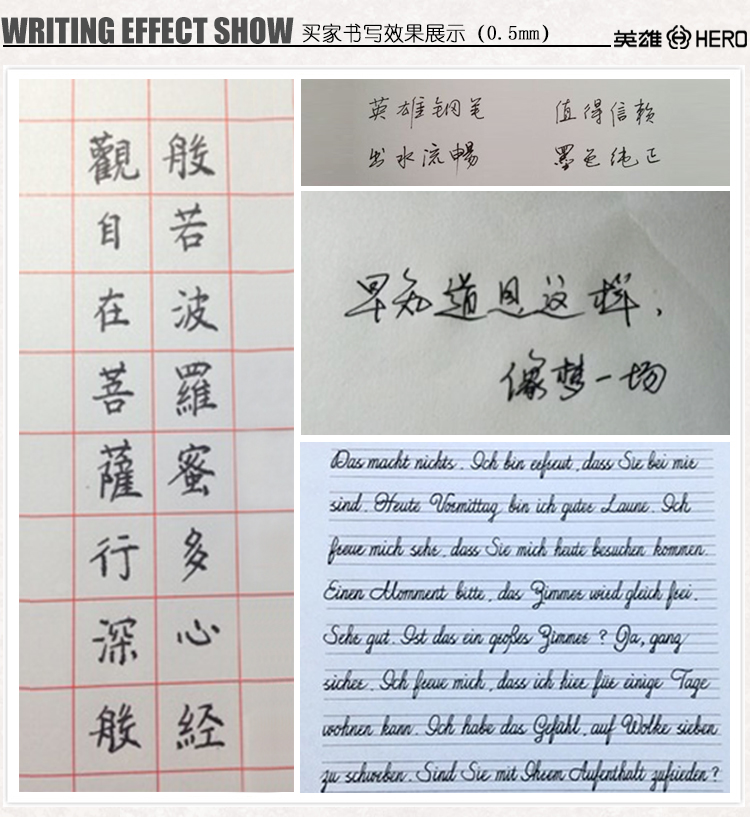 WRITING EFFECT SHOW 买家书写效果展示（0.5mm） 英雄 HERO
般若波羅蜜多心経
觀自在菩薩行深般
英雄钢笔 值得信赖
出水流暢 墨色纯正
早知道是这样，
像梦一场
Das macht nichts. Ich bin erfreut, dass Sie bei mir
sind. Heute Vormittag bin ich guter Laune. Ich
freue mich sehr, dass Sie mich heute besuchen kommen.
Einen Momment bitte, das Zimmer wird gleich frei.
Sehr gut. Ist das ein großes Zimmer? Ja, ganz
sicher. Ich freue mich, dass ich hier für einige Tage
wohnen kann. Ich habe das Gefühl, auf Wolke sieben
zu schweben. Sind Sie mit Ihrem Aufenthalt zufrieden?